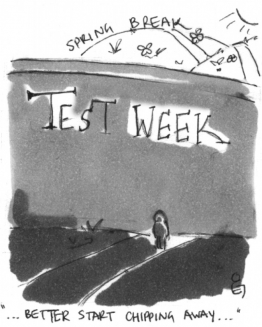 SPRING BREAK
TEST WEEK
"... BETTER START CHIPPING AWAY..."